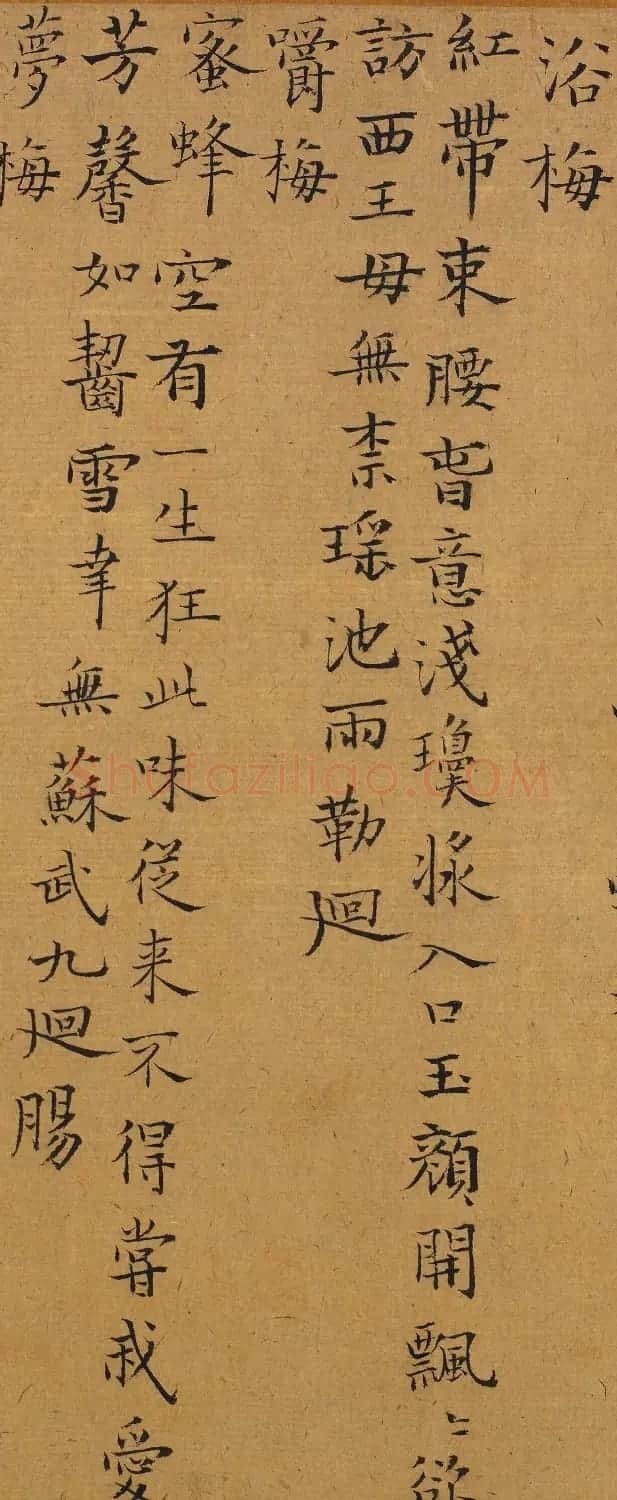 浴梅
紅帶束腰旹意淺瓊漿入口玉顏開飄〻欲
訪西王母無柰瑶池雨勒迴
嚼梅
蜜蜂空有一生狂此味從来不得甞我愛
芳馨如齧雪幸無蘇武九迴腸
夢梅
shufaziliao.COM